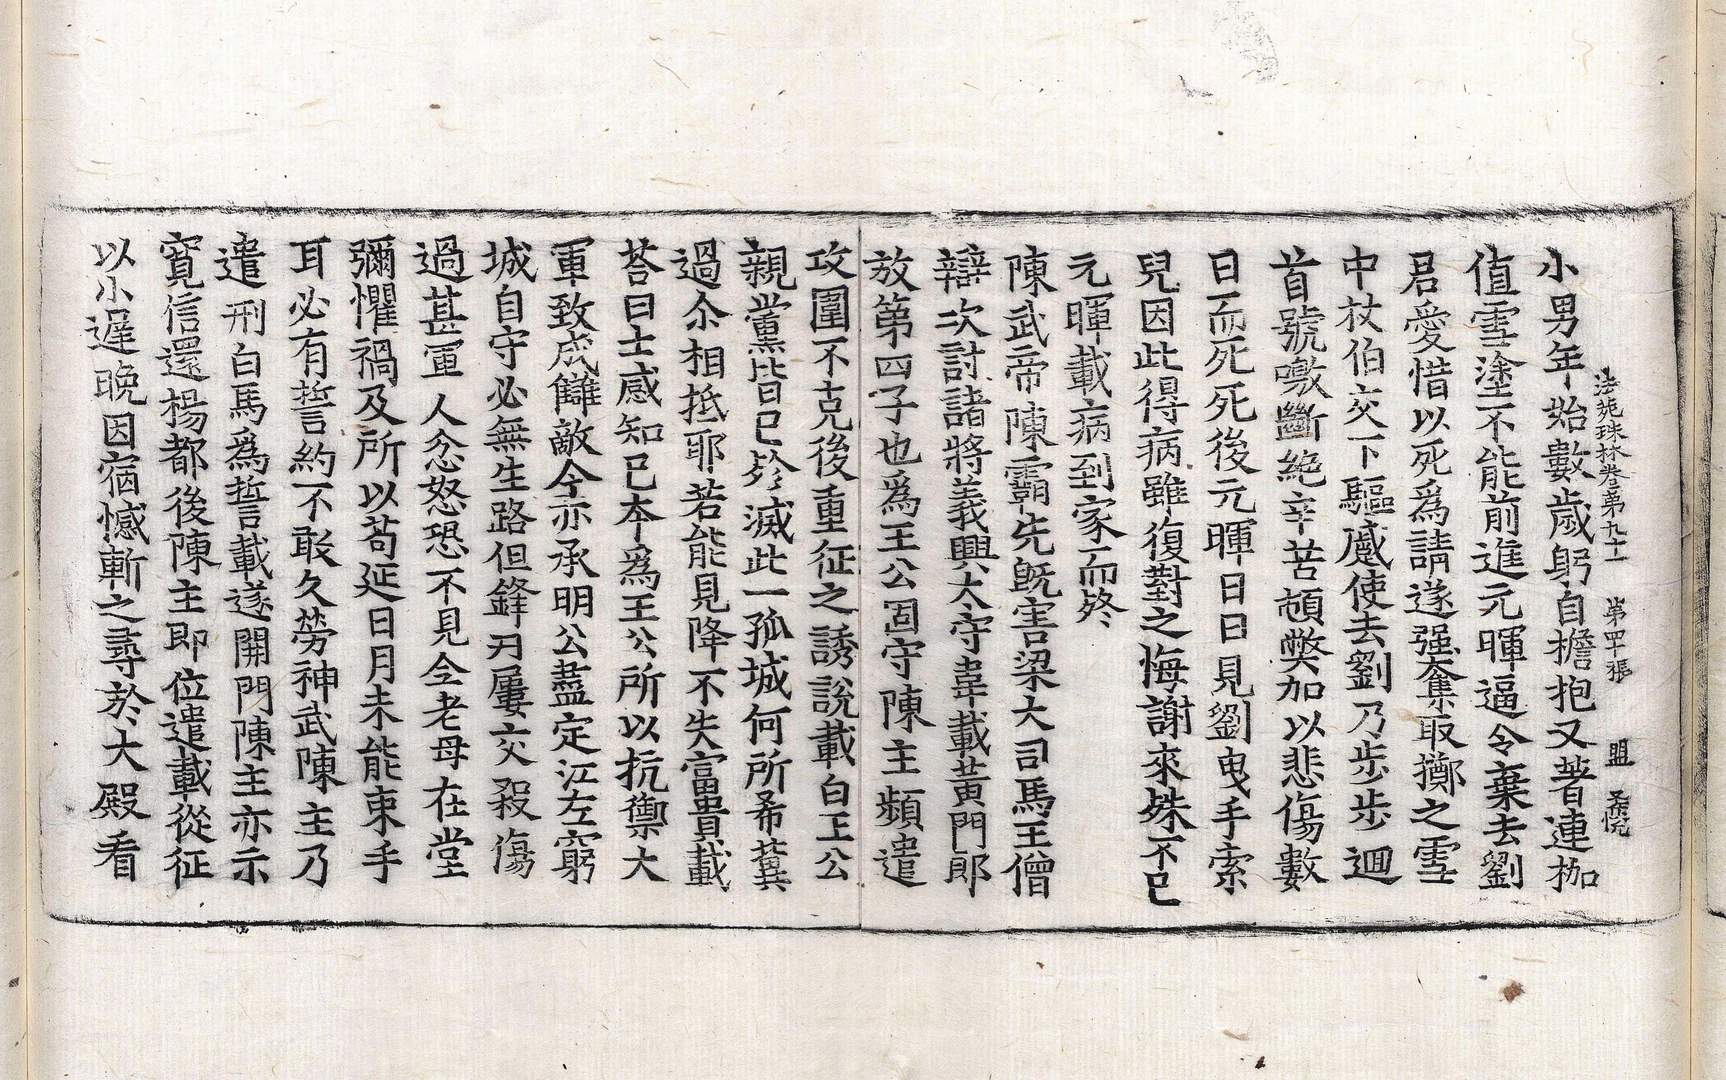 法苑珠林卷第九十一　第四十張　盟
小男年始數歲躬自擔抱又著連枷
值雪塗不能前進元暉逼令棄去劉
君愛惜以死爲請遂强奪取擲之雪
中杖伯交下驅蹙使去劉乃步步迴
首號噭斷絶辛苦頓獘加以悲傷數
日而死死後元暉日日見劉曳手索
兒因此得病雖復對之悔謝來殊不已
元暉載病到家而終
陳武帝陳霸先旣害梁大司馬王僧
辯次討諸將義興大守韋載黃門郎
放第四子也爲王公固守陳主頻遣
攻圍不克後重征之誘說載白王公
親黨皆已殄滅此一孤城何所希冀
過尒相抵耶若能見降不失富貴載
荅曰士感知已本爲王公所以抗禦大
軍致成讎敵今亦承明公盡定江左窮
城自守必無生路但鋒刃屢交殺傷
過甚軍人忿怒恐不見全老母在堂
彌懼禍及所以苟延日月未能束手
耳必有誓約不敢久勞神武陳主乃
遣刑白馬爲誓載遂開門陳主亦示
寬信還楊都後陳主即位遣載從征
以小遲晚因宿憾斬之尋於大殿看